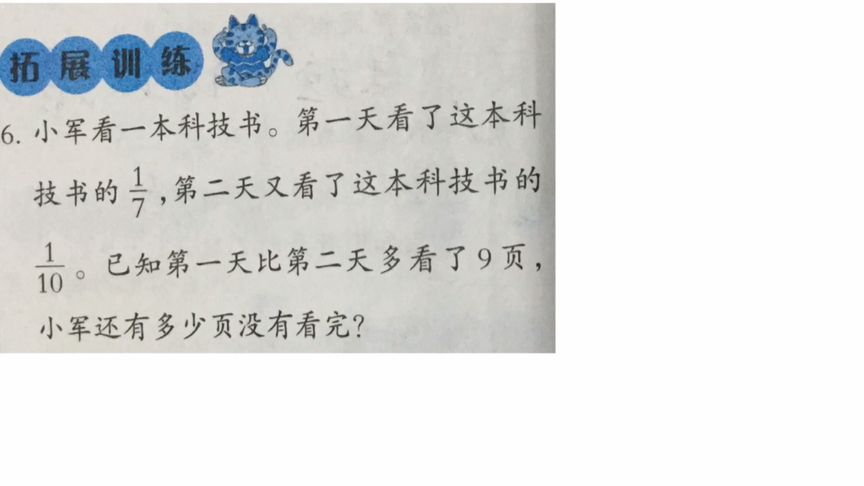 拓展训练
6. 小军看一本科技书。第一天看了这本科
技书的 1/7 ,第二天又看了这本科技书的
1/10 。已知第一天比第二天多看了 9 页,
小军还有多少页没有看完?